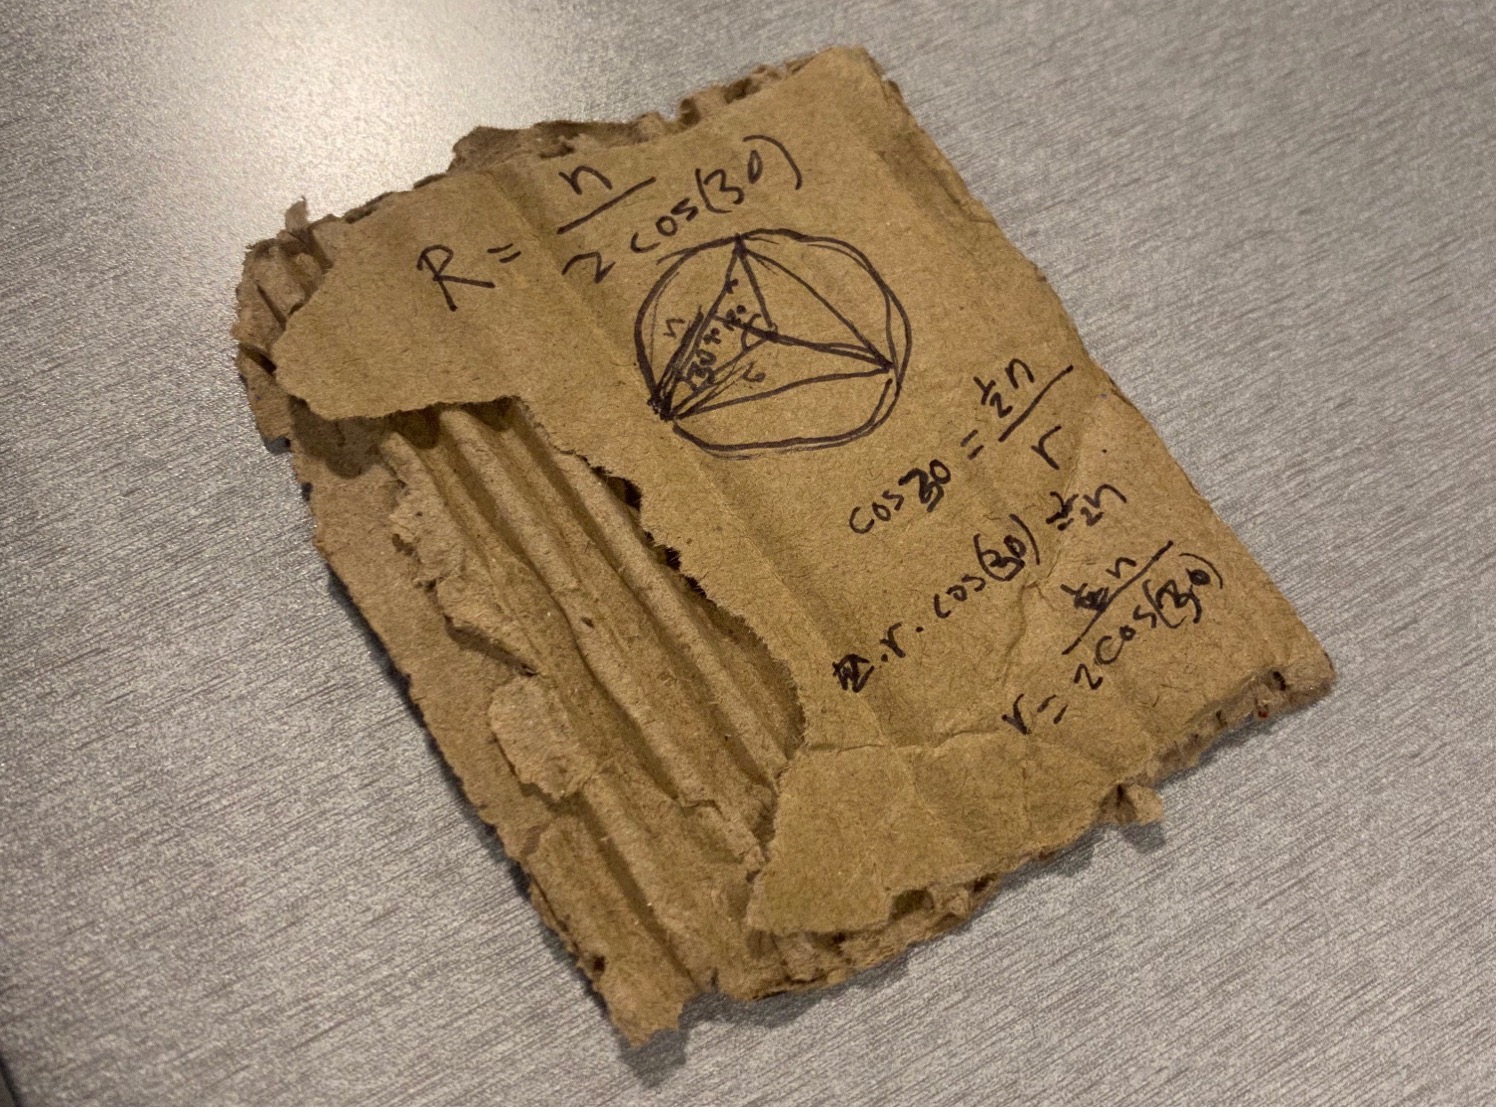 R = n / 2 cos(30)
n
r
30
r
cos 30 = ½n / r
r · cos(30) = ½n
r = n / 2cos(30)